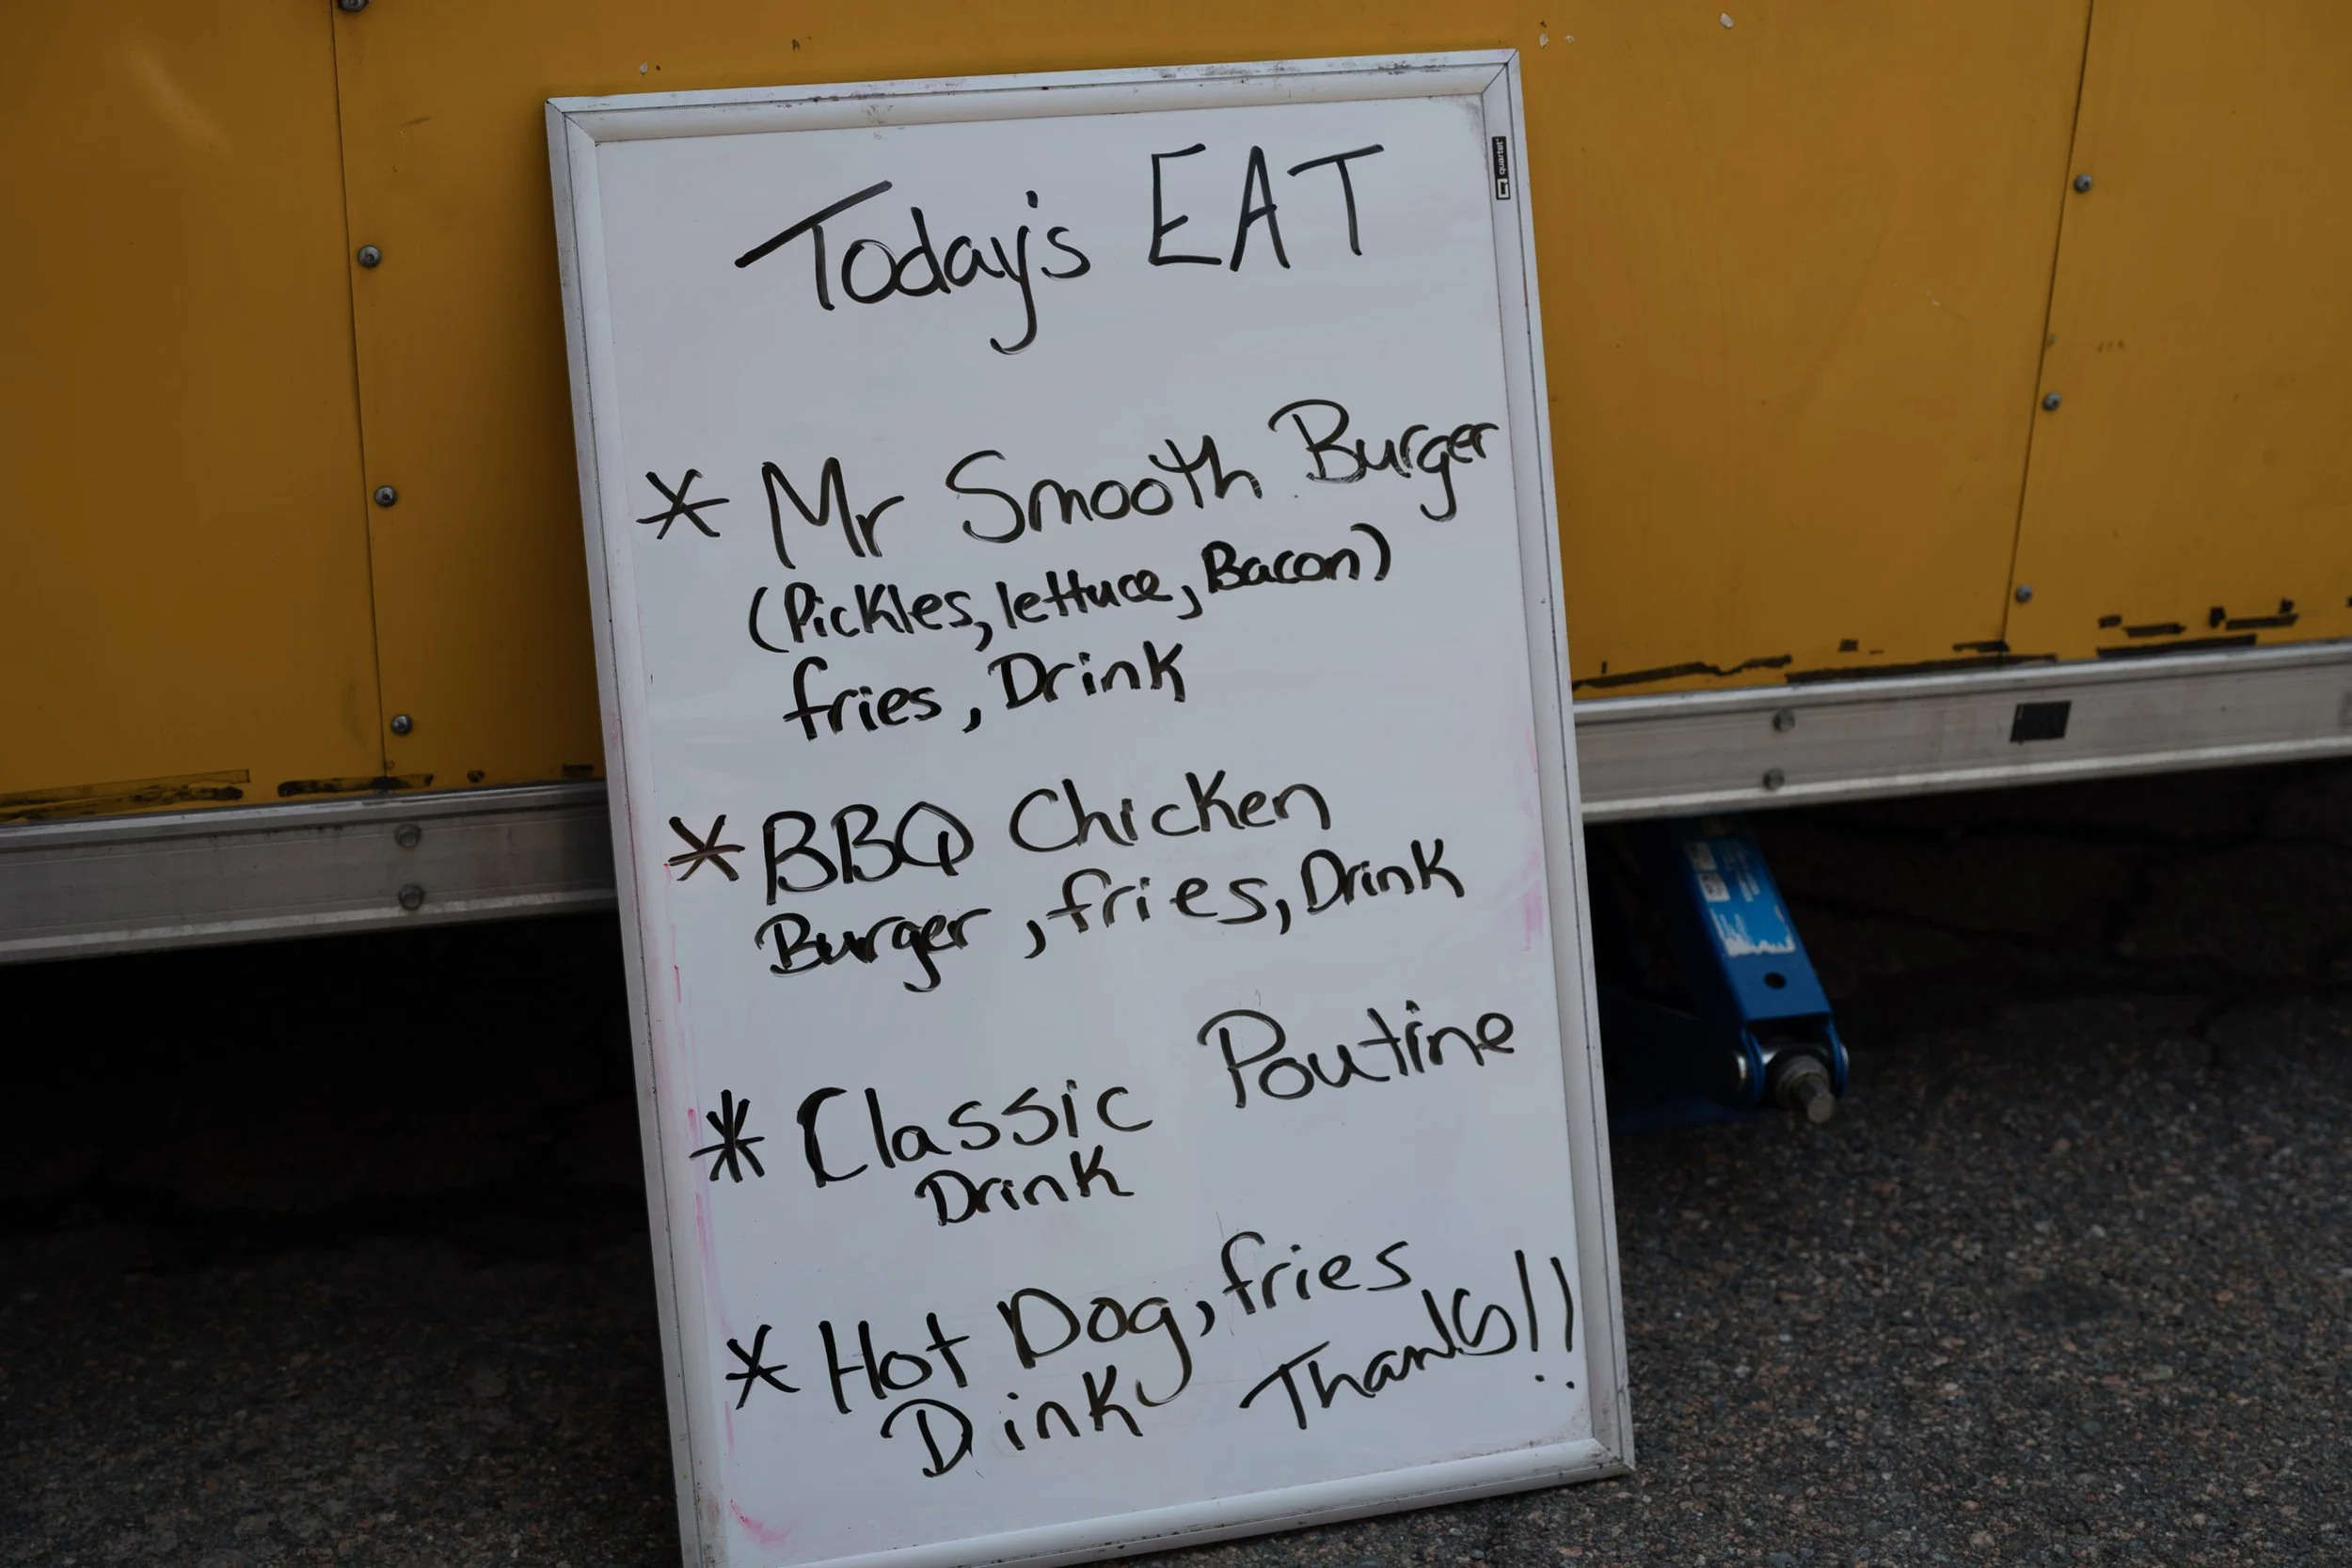 Today's EAT
* Mr Smooth Burger
(Pickles, lettuce, Bacon)
fries, Drink
* BBQ Chicken
Burger, fries, Drink
* Classic Poutine
Drink
* Hot Dog, fries
Drink Thanks!!
quartet